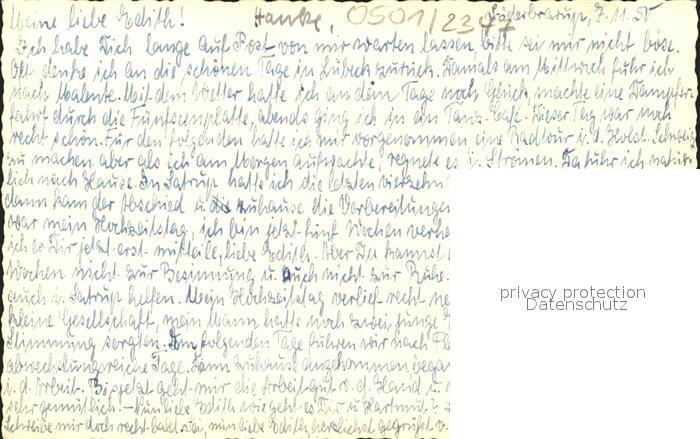 Meine liebe Edith! Hanke, 0501/2397 Süderbrarup, 7.11.50
Ich habe Dich lange auf Post von mir warten lassen, bitte sei mir nicht böse.
Oft denke ich an die schönen Tage in Lübeck zurück. Damals am Mittwoch fuhr ich
nach Malente. Mit dem Wetter hatte ich an dem Tage noch Glück, machte eine Dampfer-
fahrt durch die Fünfseenplatte, abends ging ich in ein Tanz-Café. Dieser Tag war noch
recht schön. Für den folgenden hatte ich mir vorgenommen eine Radtour i. d. Holst. Schweiz
zu machen aber als ich am Morgen aufwachte, regnete es in Strömen. Da fuhr ich natür-
lich nach Hause. In Satrup hatte ich die letzten vierzehn
dann kam der Abschied u. zuhause die Vorbereitungen
war mein Hochzeitstag, ich bin jetzt fünf Wochen verhe
ich es Dir jetzt erst mitteile, liebe Edith. Aber Du kannst
Wochen nicht zur Besinnung u. auch nicht zur Ruhe.
auch i. Satrup helfen. Mein Hochzeitstag verlief recht ne
kleine Gesellschaft, mein Mann hatte noch zwei junge
Stimmung sorgten. Am folgenden Tage fuhren wir nach
abwechslungsreiche Tage. Dann zuhause angekommen began
i. d. Arbeit. Bis jetzt geht mir die Arbeit gut v. d. Hand u.
sehr gemütlich! – Nun liebe Edith wie geht es Dir u. Hartmut?
Schreibe mir doch recht bald, nun liebe Edith herzlichst gegrüßt v.
privacy protection
Datenschutz